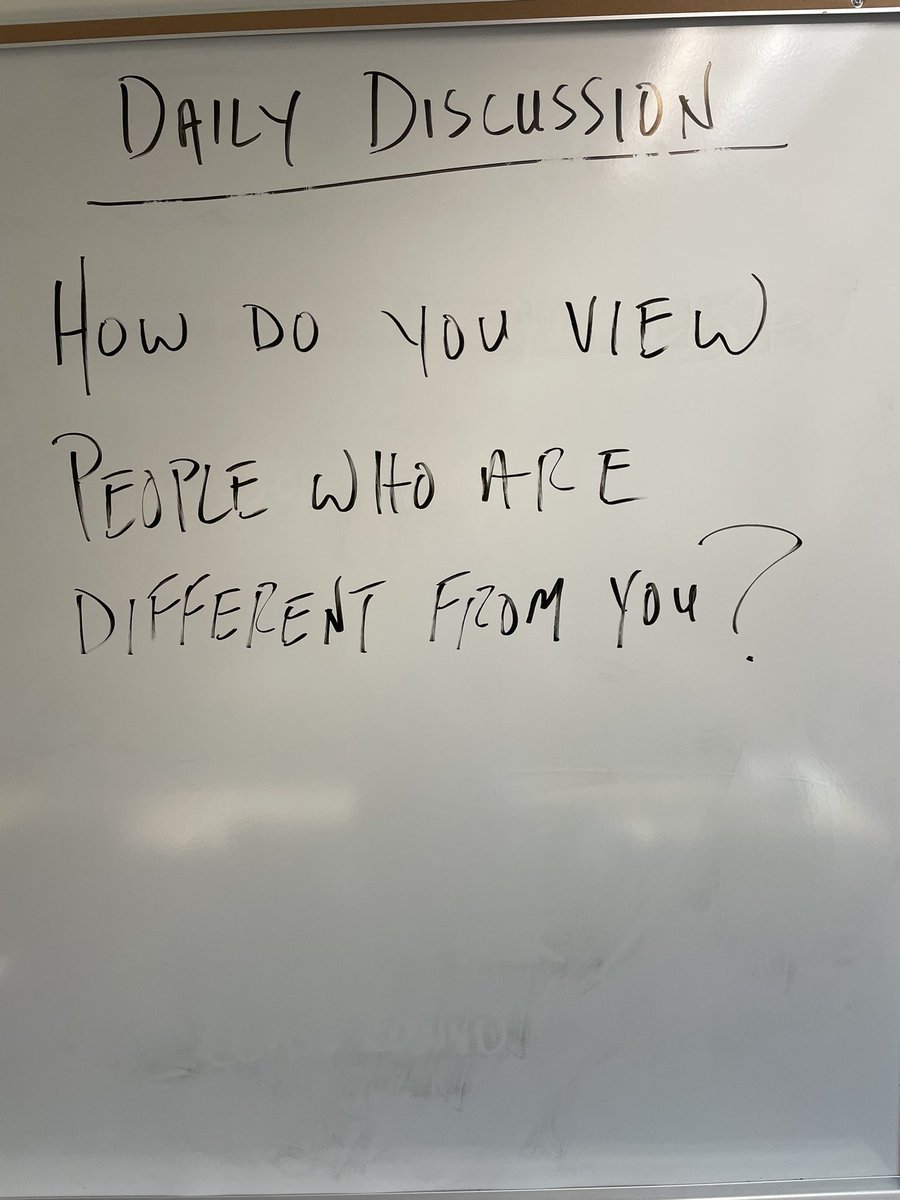 DAILY DISCUSSION
HOW DO YOU VIEW
PEOPLE WHO ARE
DIFFERENT FROM YOU?